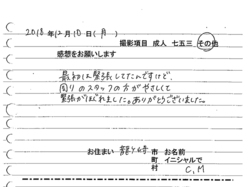 2018年12月10日(月)
撮影項目 成人 七五三 その他
感想をお願いします
最初は緊張してたんですけど、
周りのスタッフの方がやさしくて
緊張がほぐれました。ありがとうございました。
お住まい 龍ケ崎 市 お名前
町 イニシャルで
村 C,M